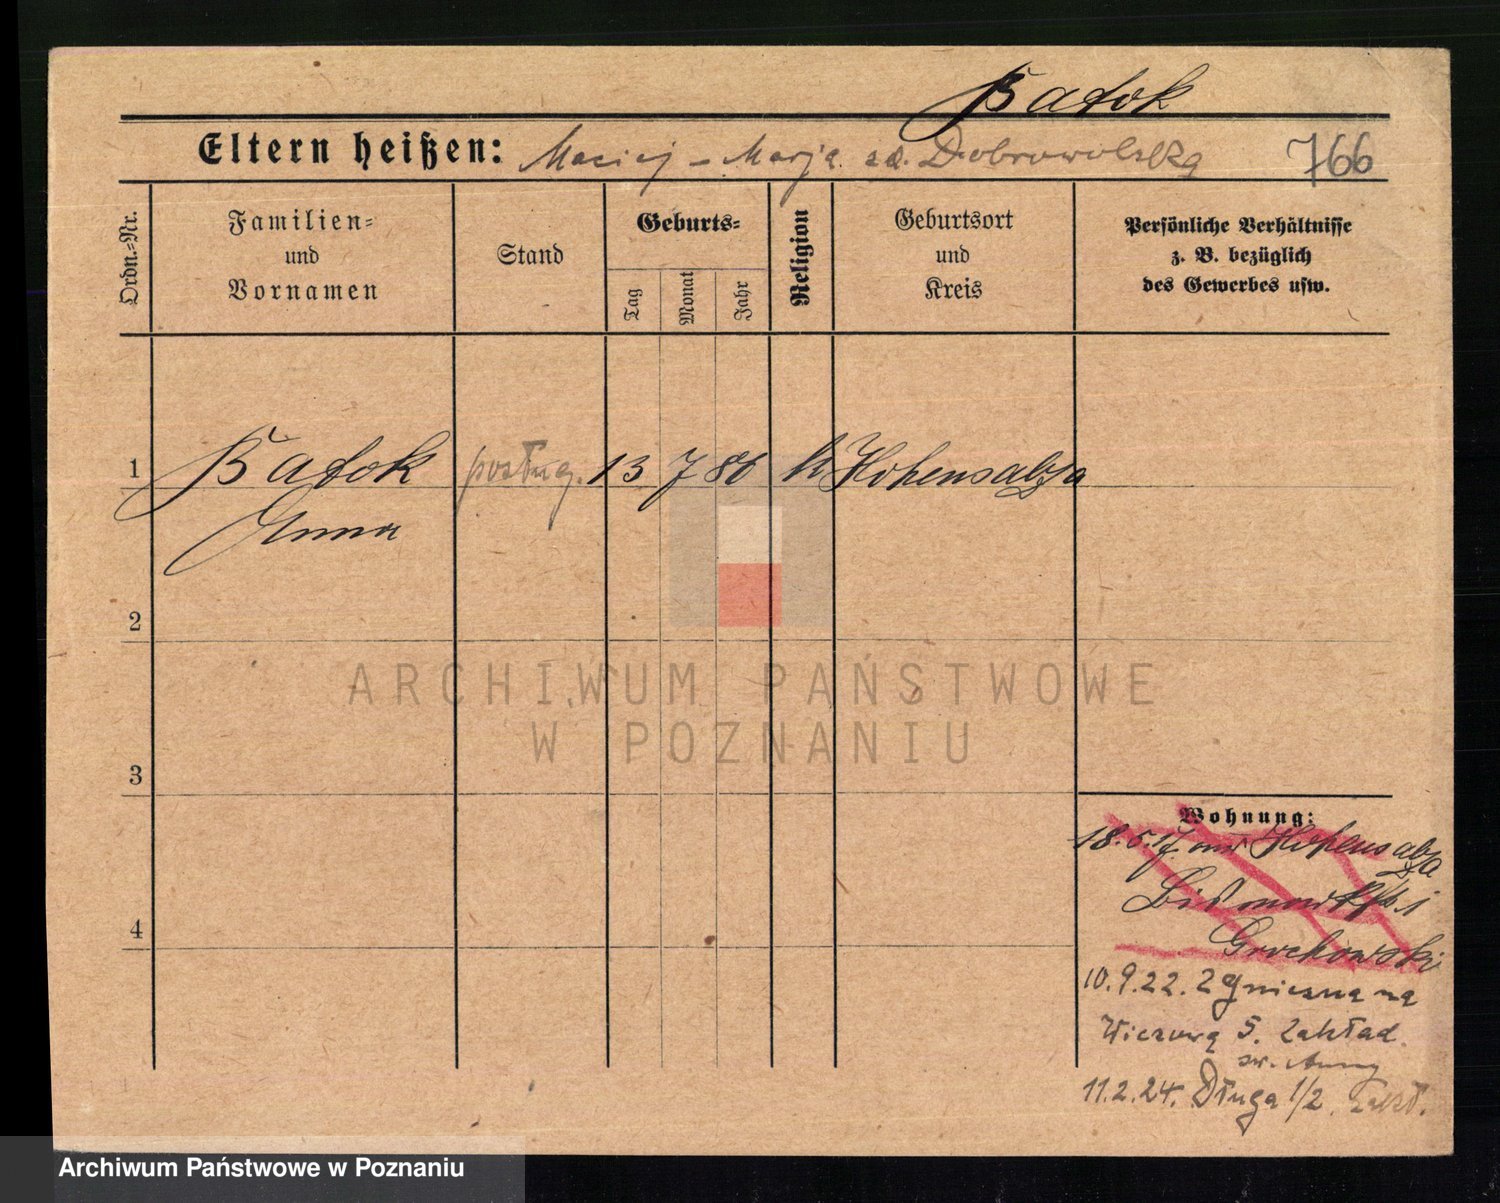 Batok
Eltern heißen: Maciej - Marja zd. Dobrowolska 766
Ordn.=Nr.
Familien=
und
Vornamen
Stand
Geburts=
Tag
Monat
Jahr
Religion
Geburtsort
und
Kreis
Persönliche Verhältnisse
z. B. bezüglich
des Gewerbes usw.
1 Batok posług. 13 7 86 k Hohensalza
Anna
2
3
4
Wohnung:
18.5.17. aus Hohensalza
Grochowski
10.9.22. z Gniezna na
Wieżową 5. Zakład.
św. Anny
11.2.24. Długa 1/2. Zakł.
ARCHIWUM PAŃSTWOWE
W POZNANIU
Archiwum Państwowe w Poznaniu